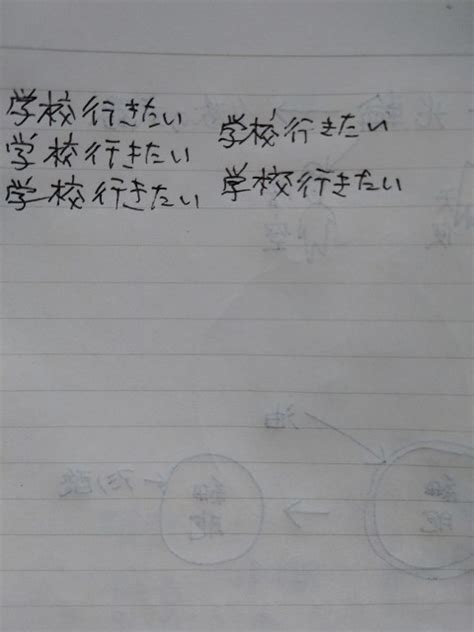 学校行きたい
学校行きたい
学校行きたい
学校行きたい
学校行きたい
油
細胞
細胞